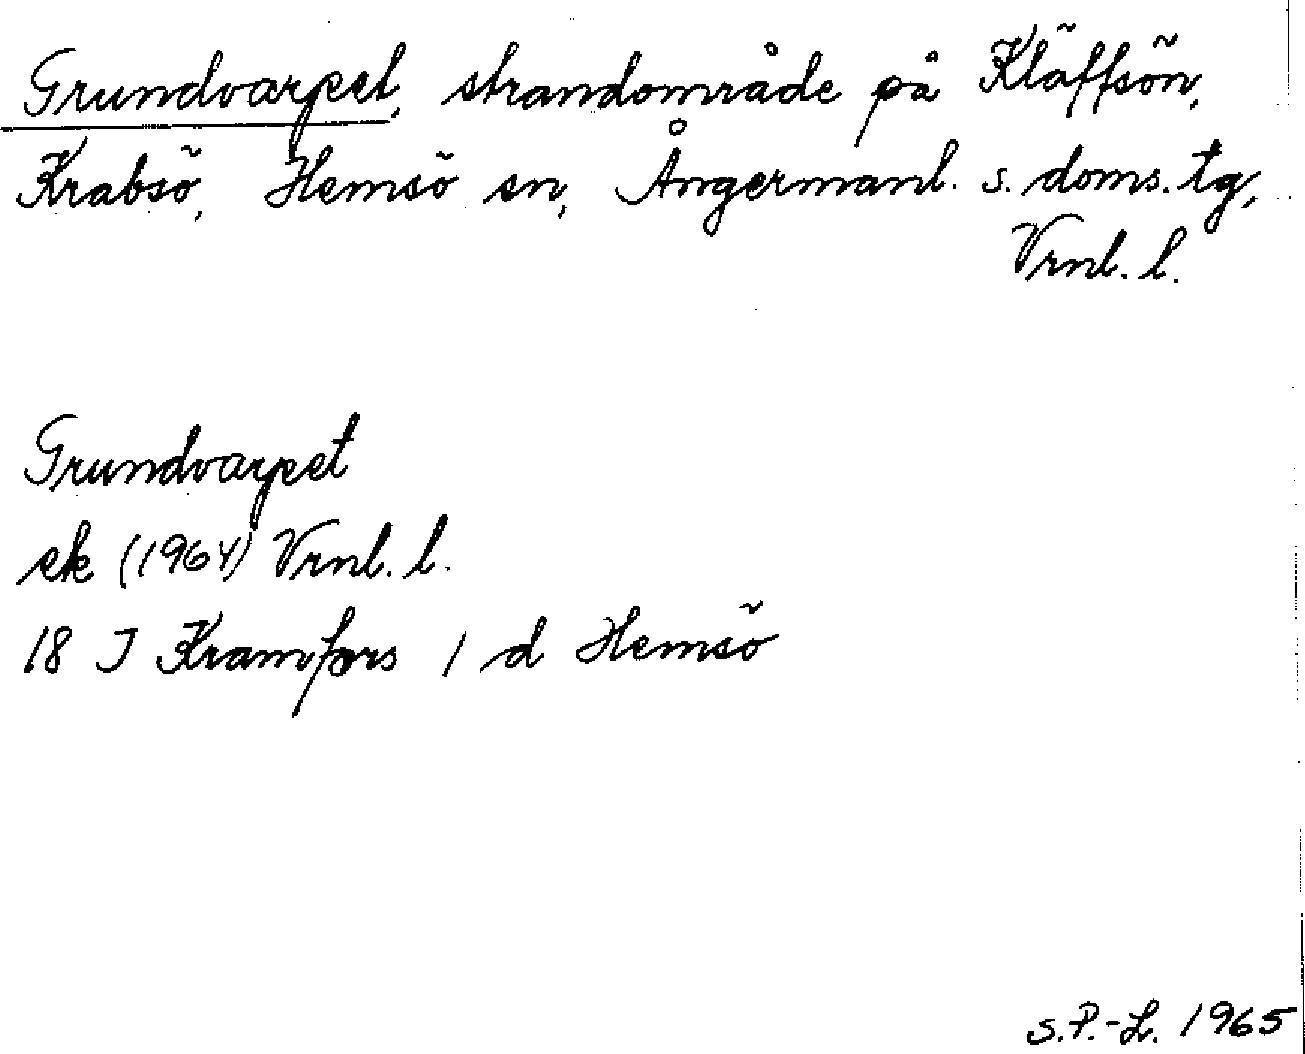 Grundvarpet, strandområde på Kläffsön,
Krabsö, Hemsö sn, Ångermanl. s. doms. tg,
Vrnl. l.
Grundvarpet
ek (1964) Vrnl. l.
18 J Kramfors 1 d Hemsö
S.P.-L. 1965